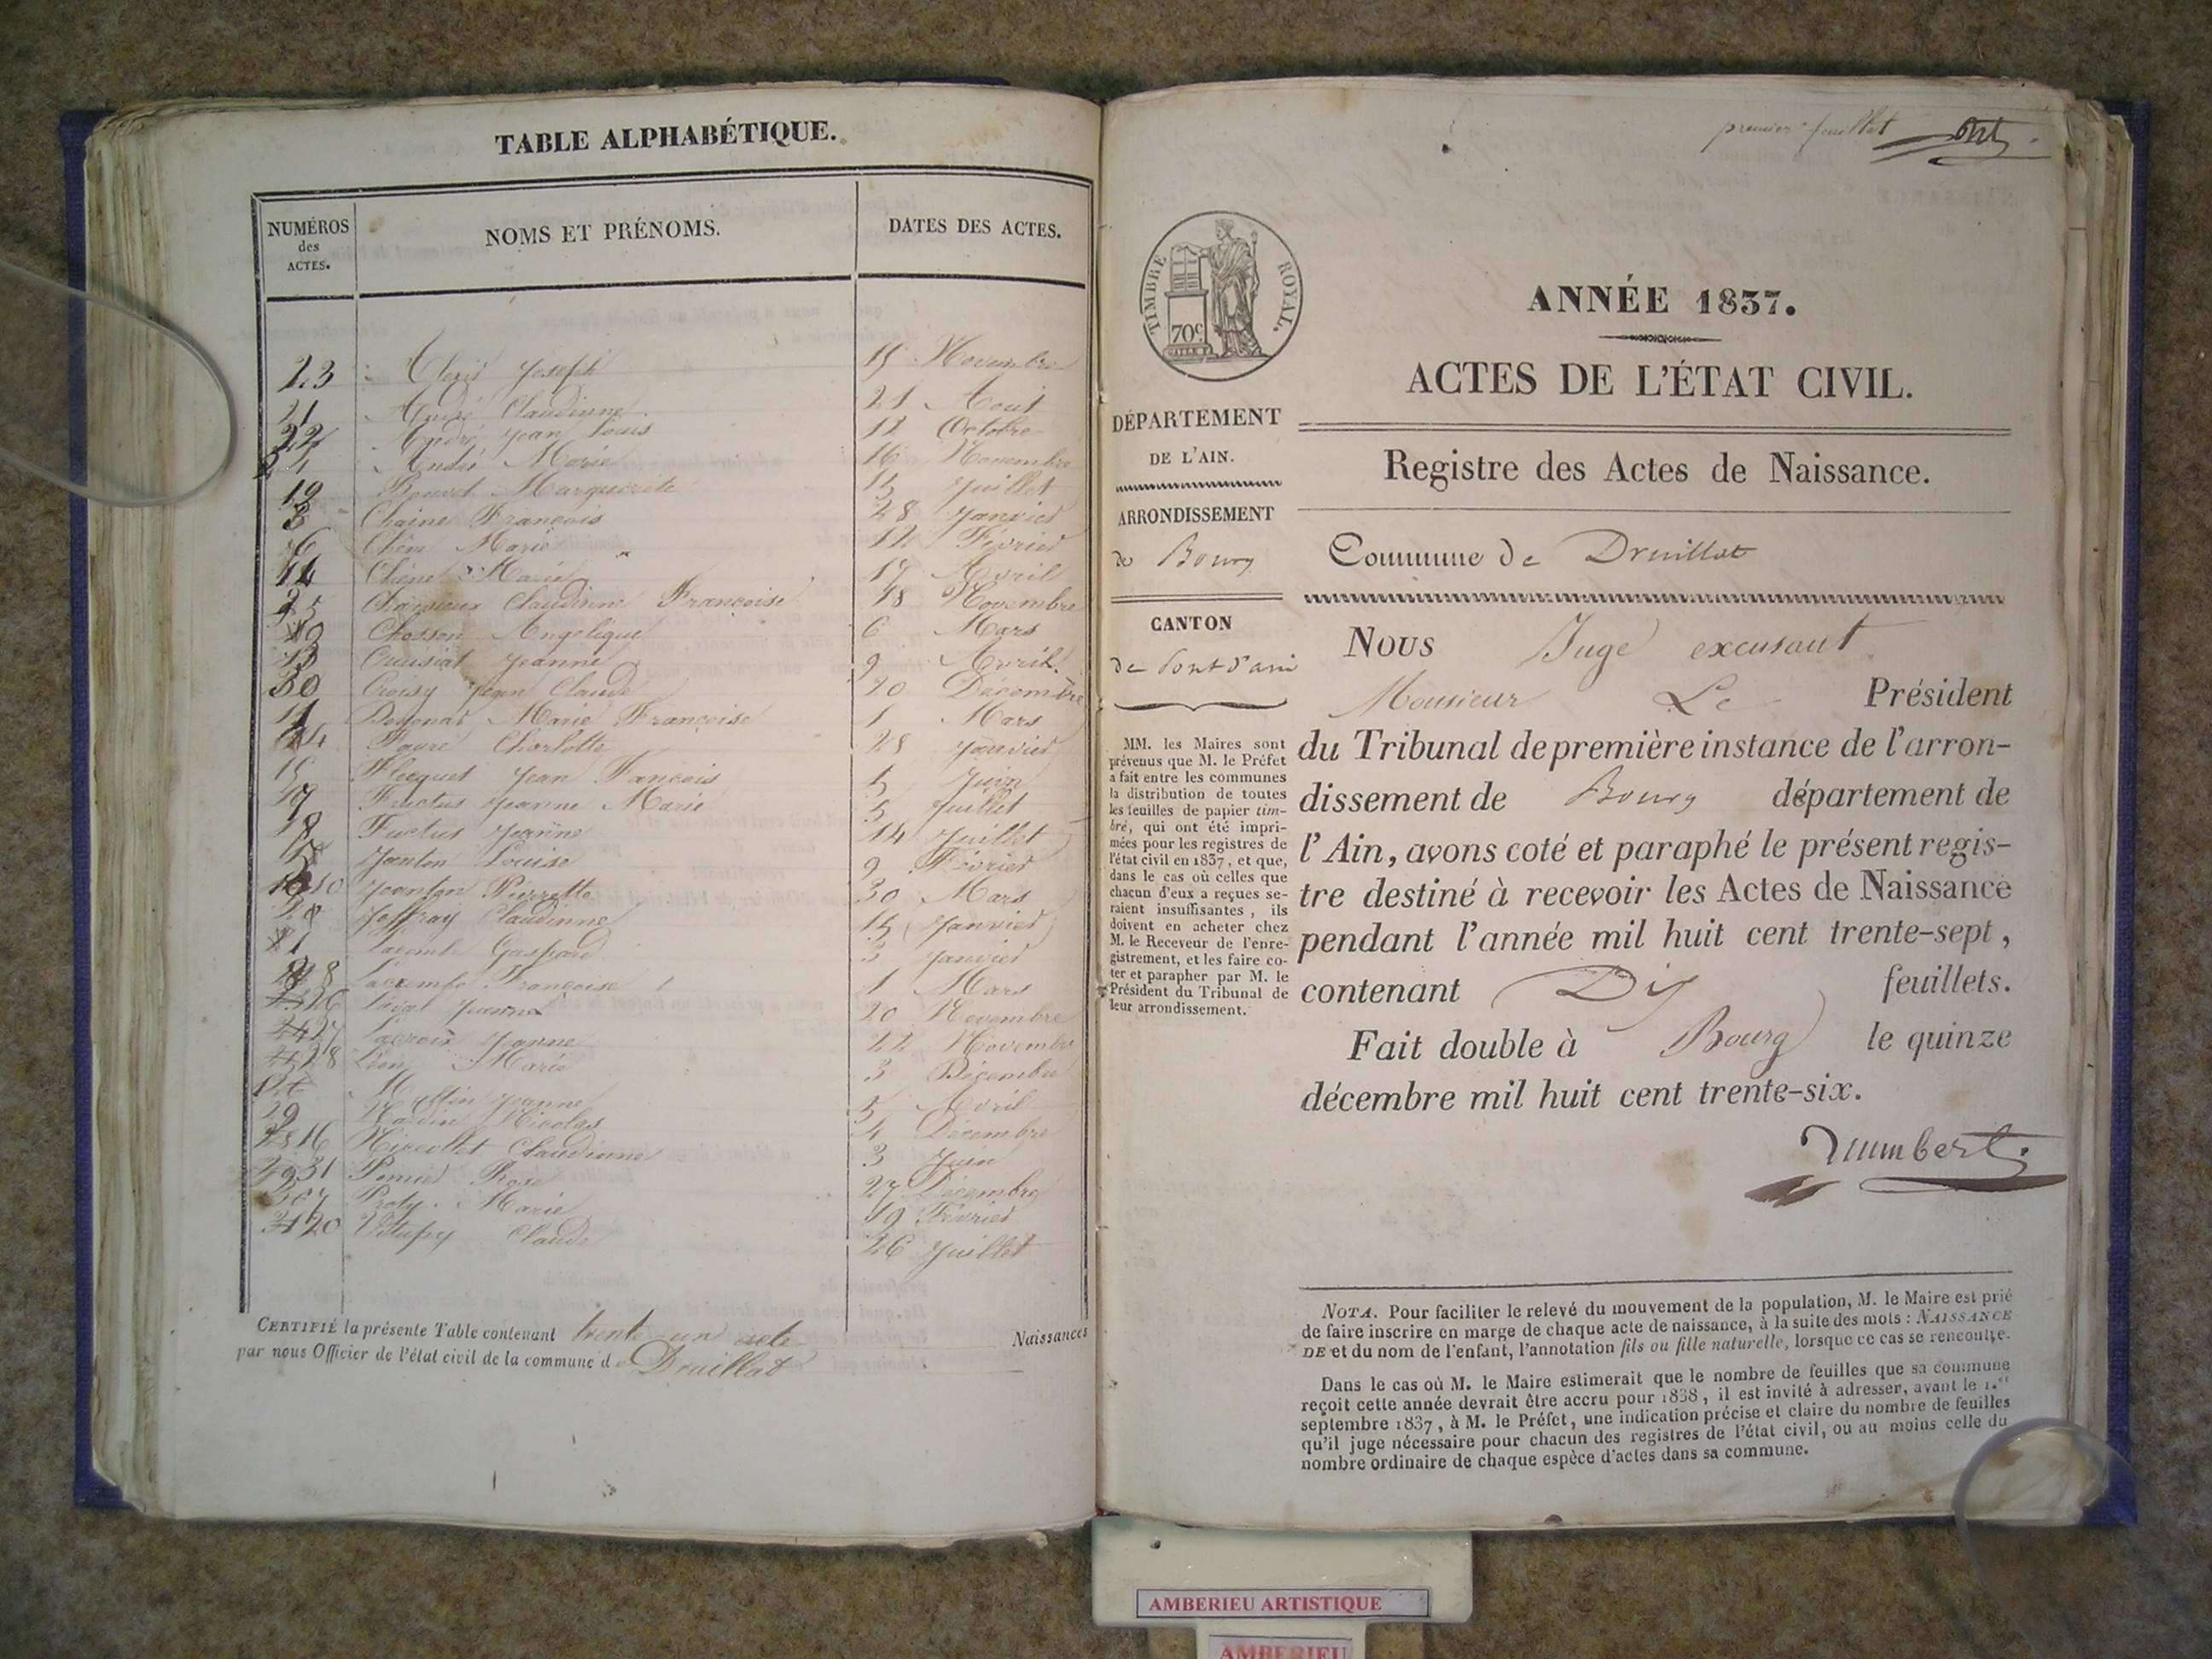 TABLE ALPHABÉTIQUE.
NUMÉROS
des
ACTES.
NOMS ET PRÉNOMS.
DATES DES ACTES.
23 Joseph 15 Novembre
21 André Claudinne 21 Aout
22 André Jean Louis 12 Octobre
André Marie 16 Novembre
19 Bouvet Marguerite 15 Juillet
3 Chaine François 28 Janvier
6 Marie 12 Février
Chêne Marie 17 Avril
25 Claudinne Françoise 18 Novembre
Chosson Angelique 6 Mars
13 Cruisiat Jeanne 9 Avril
30 Croisy Jean Claude 20 Décembre
Marie Françoise 1 Mars
4 Favre Charlotte 28 Janvier
15 Jean 5 Juin
17 Fructus Jeanne Marie 5 Juillet
18 Jeanne 14 Juillet
5 Janton Louise 9 Février
10 Janton Pierrette 30 Mars
2 Joffray Claudinne 15 Janvier
1 Gaspard 3 Janvier
8 Lacombe Françoise 1 Mars
26 Jeanne 20 Novembre
27 Lacroix Jeanne 22 Novembre
28 Marie 3 Décembre
Jeanne 5 Avril
29 Nicolas 4 Décembre
16 Claudinne 3 Juin
31 Rose 27 Décembre
7 Marie 19 Février
20 Claude 26 Juillet
CERTIFIÉ la présente Table contenant trente un acte Naissances
par nous Officier de l'état civil de la commune de Druillat
premier feuillet
TIMBRE ROYAL.
70c
ANNÉE 1837.
ACTES DE L'ÉTAT CIVIL.
Registre des Actes de Naissance.
Commune de Druillat
DÉPARTEMENT
DE L'AIN.
ARRONDISSEMENT
de Bourg
CANTON
de Pont d'ain
MM. les Maires sont
prévenus que M. le Préfet
a fait entre les communes
la distribution de toutes
les feuilles de papier tim-
bré, qui ont été impri-
mées pour les registres de
l'état civil en 1837, et que,
dans le cas où celles que
chacun d'eux a reçues se-
raient insuffisantes, ils
doivent en acheter chez
M. le Receveur de l'enre-
gistrement, et les faire co-
ter et parapher par M. le
Président du Tribunal de
leur arrondissement.
NOUS Juge excusant
Monsieur Le Président
du Tribunal de première instance de l'arron-
dissement de Bourg département de
l'Ain, avons coté et paraphé le présent regis-
tre destiné à recevoir les Actes de Naissance
pendant l'année mil huit cent trente-sept,
contenant Dix feuillets.
Fait double à Bourg le quinze
décembre mil huit cent trente-six.
NOTA. Pour faciliter le relevé du mouvement de la population, M. le Maire est prié
de faire inscrire en marge de chaque acte de naissance, à la suite des mots : NAISSANCE
DE et du nom de l'enfant, l'annotation fils ou fille naturelle, lorsque ce cas se rencontre.
Dans le cas où M. le Maire estimerait que le nombre de feuilles que sa commune
reçoit cette année devrait être accru pour 1838, il est invité à adresser, avant le 1.er
septembre 1837, à M. le Préfet, une indication précise et claire du nombre de feuilles
qu'il juge nécessaire pour chacun des registres de l'état civil, ou au moins celle du
nombre ordinaire de chaque espèce d'actes dans sa commune.
AMBERIEU ARTISTIQUE
AMBERIEU